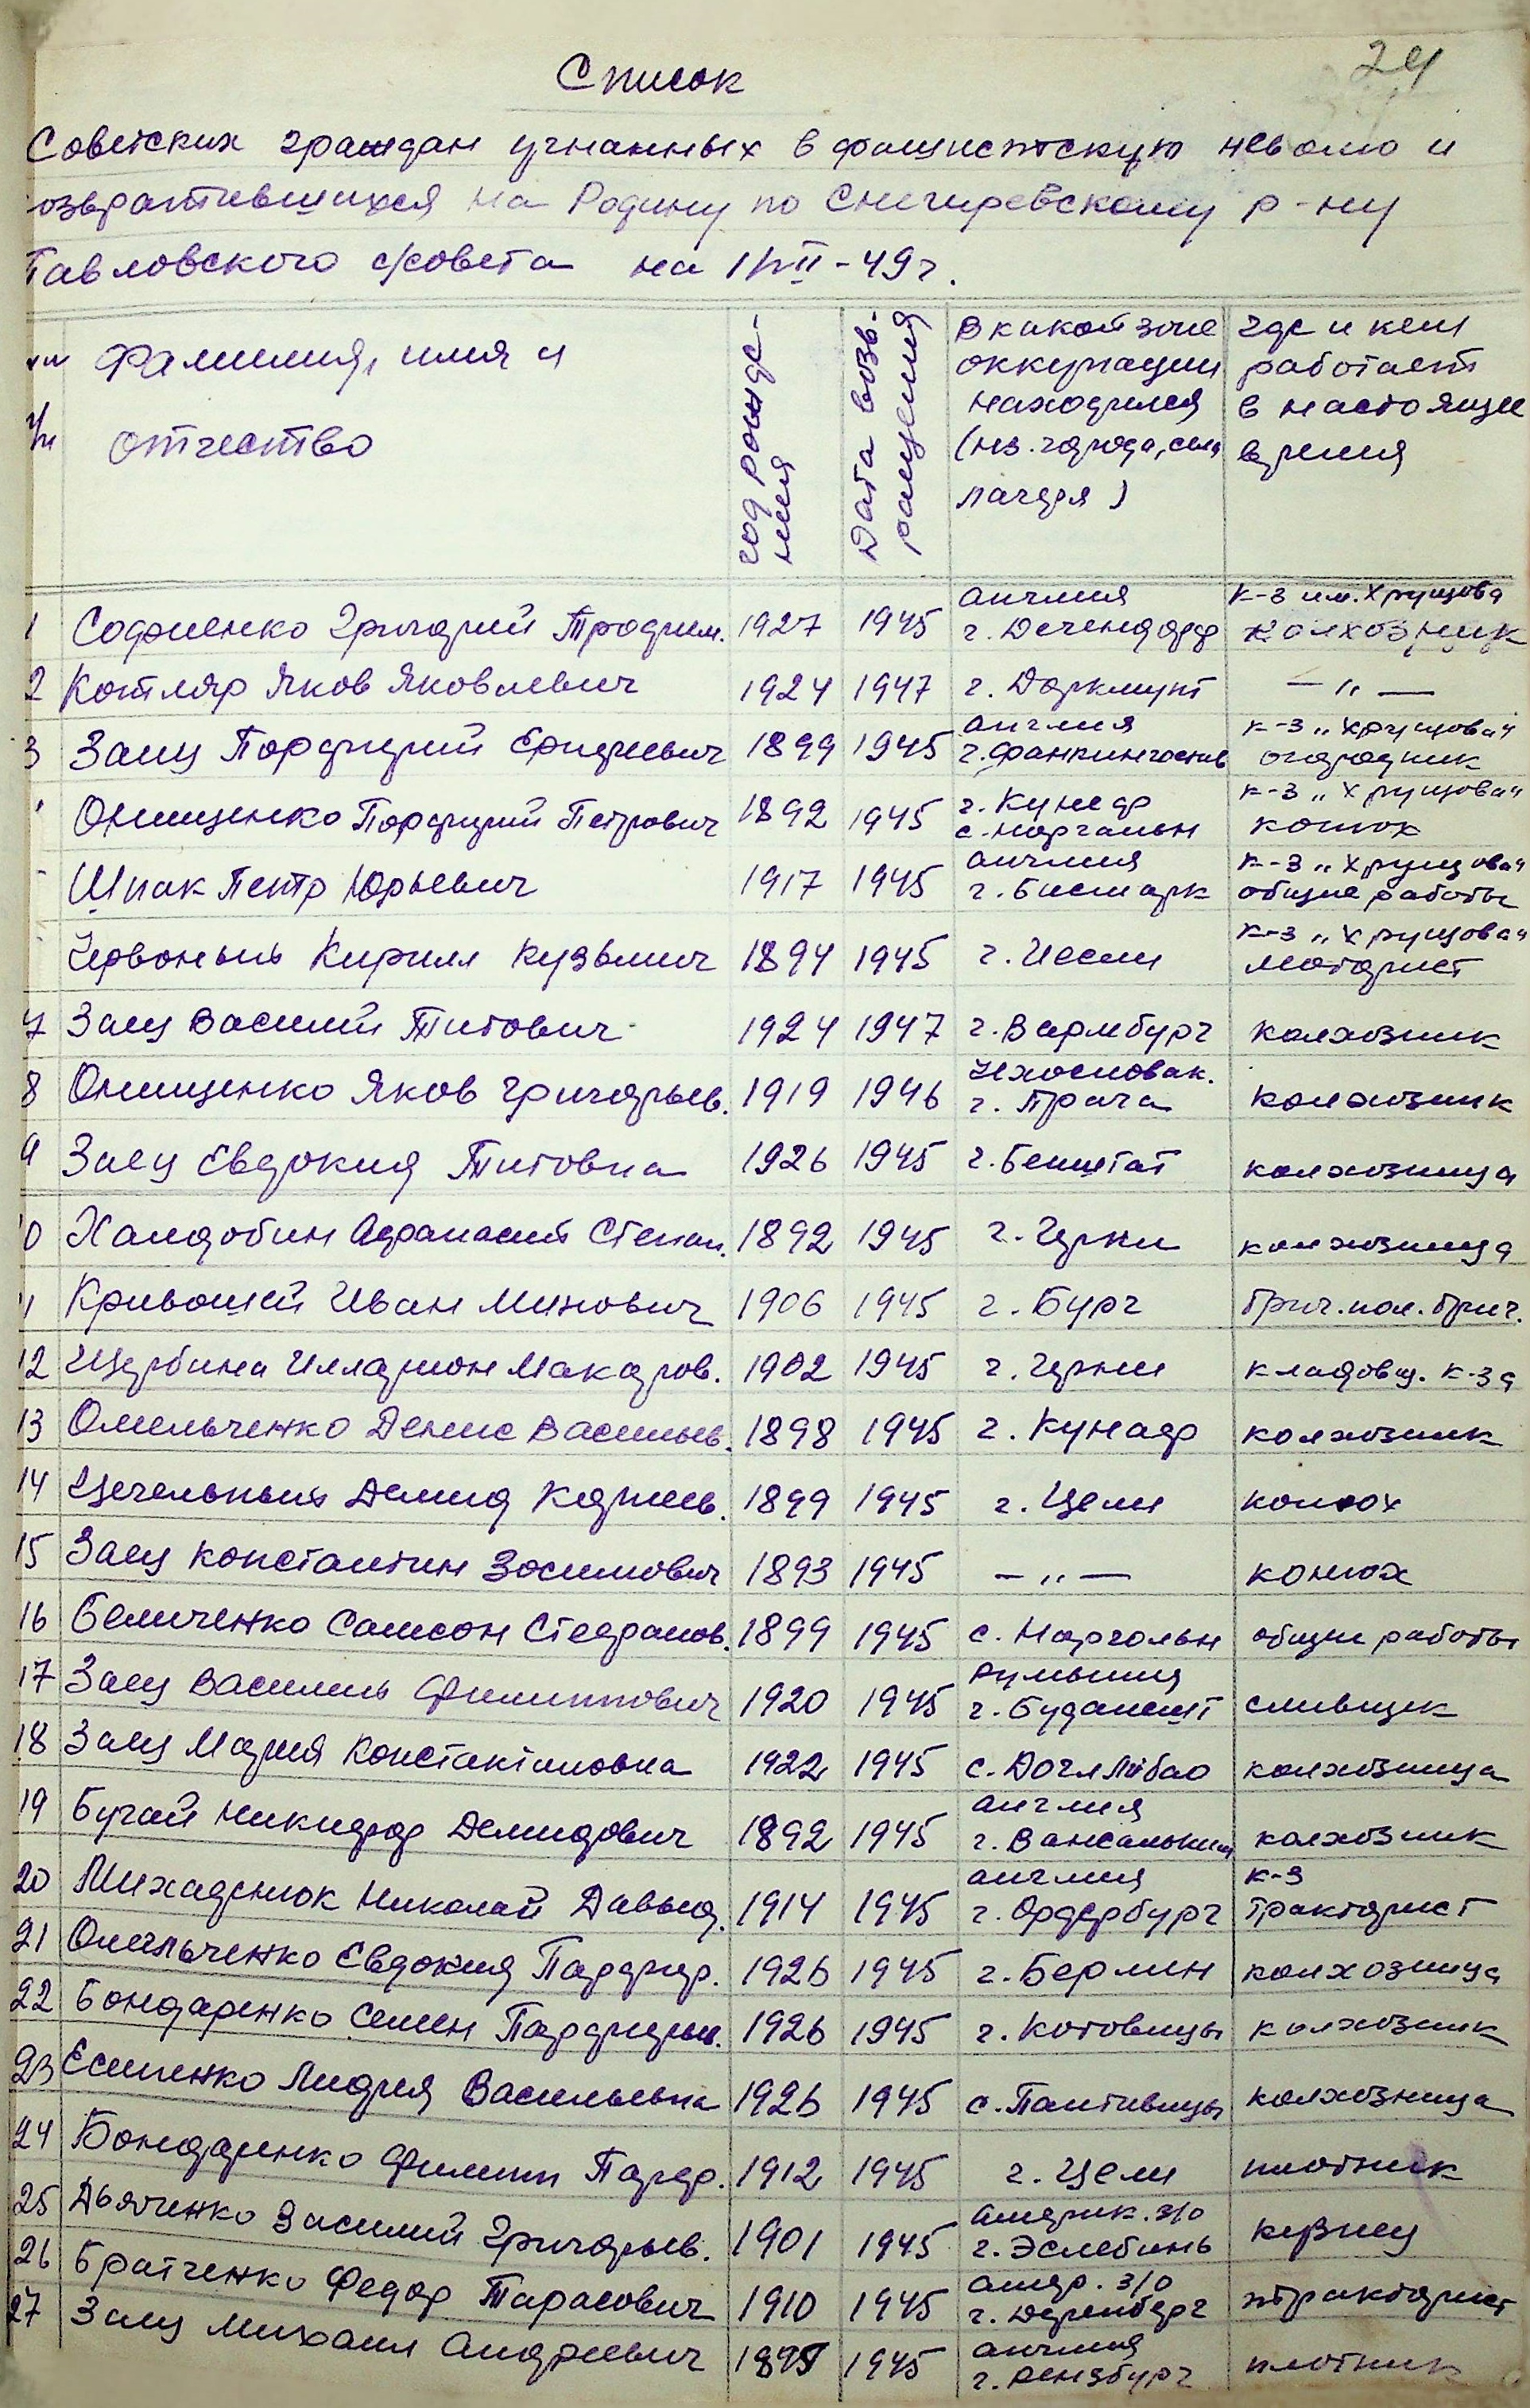 24
Список
Советских граждан угнанных в фашистскую неволю и
озвратившихся на Родину по Снегиревскому р-ну
Павловского с/совета на 1/VII-49г.
Фамилия, имя и
отчество
год рожде-
ния
Дата возв-
ращения
В какой зоне
оккупации
находился
(нз. города, села
лагеря)
где и кем
работает
в настоящее
время
1 Софиенко Григорий Трофим. 1927 1945 англия г. Дегендорф к-з им. Хрущова колхозник
2 Котляр Яков Яковлевич 1924 1947 г. Доркмунт — " —
3 Заец Порфирий Ефимиевич 1899 1945 англия к-з "Хрущова" огородник
Онищенко Порфирий Петрович 1892 1945 г. Кунедр с. Норгальн к-з "Хрущова" конюх
Шпак Петр Юрьевич 1917 1945 англия г. Бисмарк к-з "Хрущова" общие работы
Червоныш Кирилл Кузьмич 1894 1945 г. Иесен к-з "Хрущова" моторист
7 Заец Василий Титович 1924 1947 г. Вармбург колхозник
8 Онищенко Яков Григорьев. 1919 1946 Чехословак. г. Прага колхозник
9 Заец Евдокия Титовна 1926 1945 г. Бенштат колхозница
10 Хандобин Афанасий Степан. 1892 1945 г. Церки колхозница
11 Кривошей Иван Минович 1906 1945 г. Бург бриг. пол. бриг.
12 Щербина Илларион Макаров. 1902 1945 г. Церки кладовщ. к-за
13 Омельченко Денис Васильев. 1898 1945 г. Кунадр колхозник
14 Чечельныш Демид Корнеев. 1899 1945 г. Цели конюх
15 Заец Константин Зосимович 1893 1945 — " — конюх
16 Величенко Самсон Стефанов. 1899 1945 с. Норгольн общие работы
17 Заец Василь Филиппович 1920 1945 Румыния г. Будапешт сливщик
18 Заец Мария Константиновна 1922 1945 с. Догл Либао колхозница
19 Бугай Никифор Демидович 1892 1945 англия колхозник
20 Михаденюк Николай Давыд. 1914 1945 англия г. Ордербург к-з тракторист
21 Омельченко Евдокия Парфир. 1926 1945 г. Берлин колхозница
22 Бондаренко Семен Парфирьев. 1926 1945 г. Котовицы колхозник
23 Есипенко Лидия Васильевна 1926 1945 с. Пантивицы колхозница
24 Бондаренко Филипп Парф. 1912 1945 г. Цели плотник
25 Дьяченко Василий Григорьев. 1901 1945 америк. з/о г. Эслебинь кузнец
26 Братченко Федор Тарасович 1910 1945 амер. з/о г. Деренберг тракторист
27 Заец Михаил Андреевич 1945 англия г. Рензбург плотник